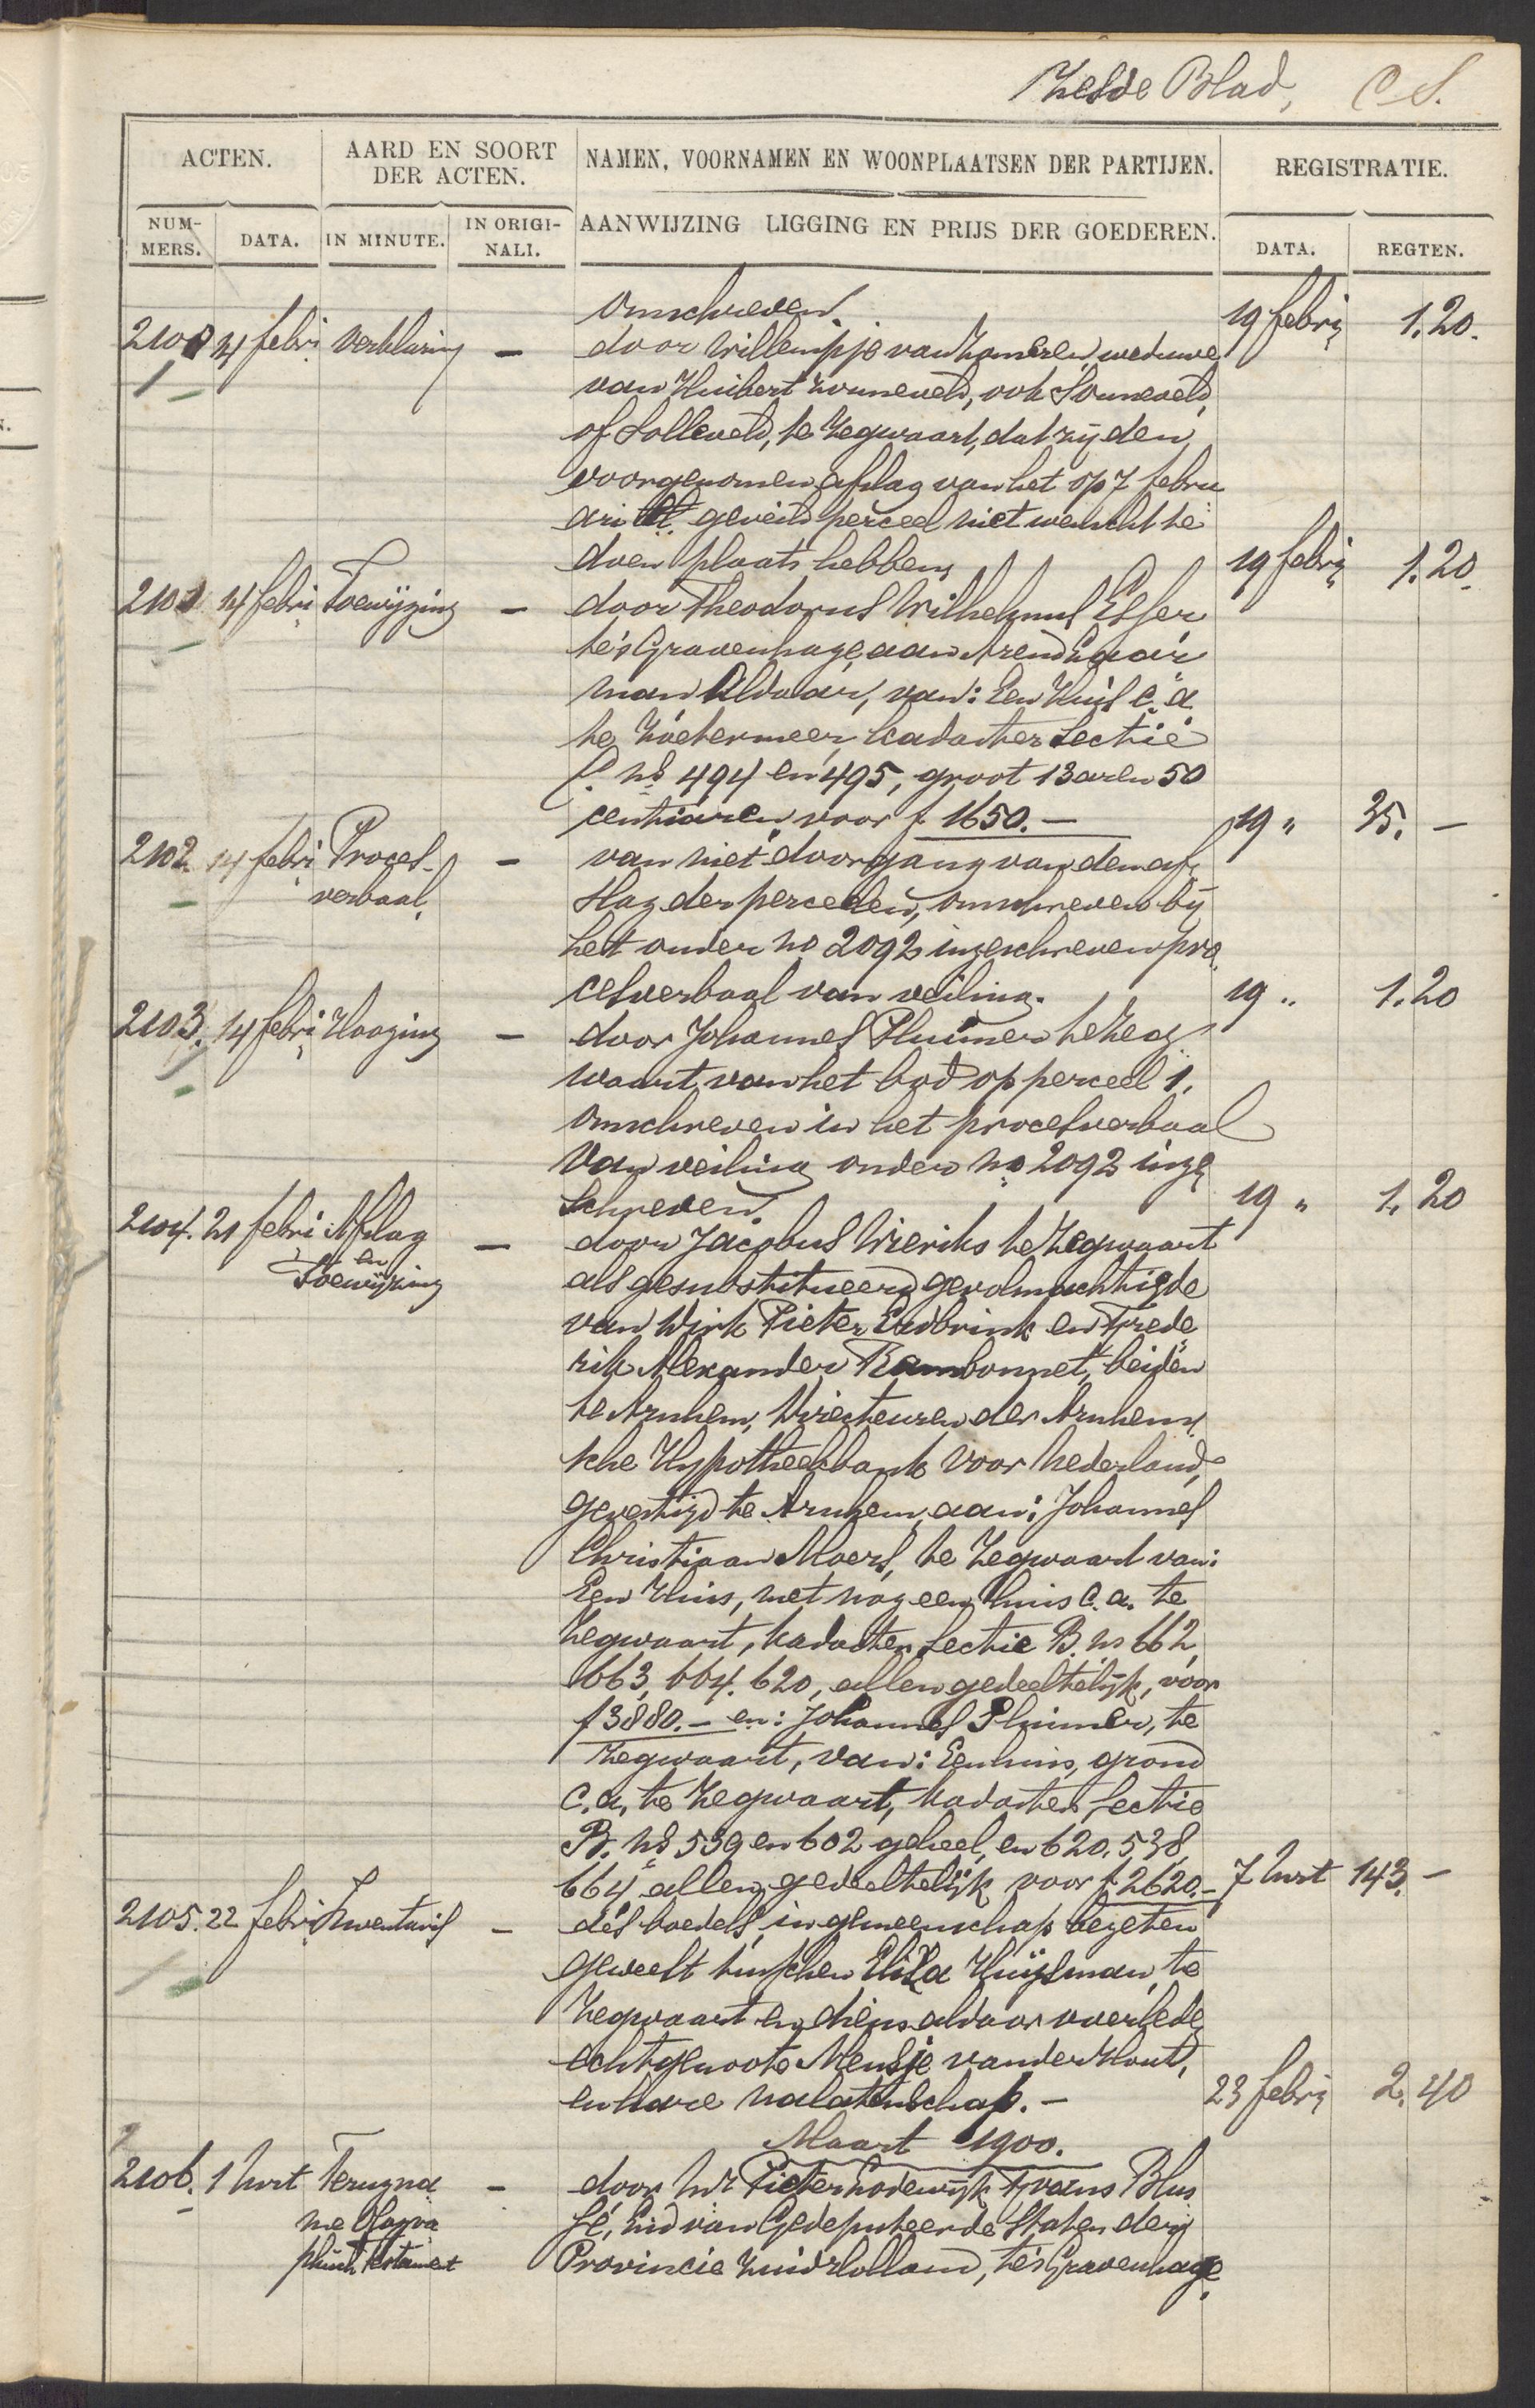 Zesde Blad, C S.
ACTEN. AARD EN SOORT DER ACTEN. NAMEN, VOORNAMEN EN WOONPLAATSEN DER PARTIJEN. REGISTRATIE.
NUM-MERS. DATA. IN MINUTE. IN ORIGI-NALI. AANWIJZING LIGGING EN PRIJS DER GOEDEREN. DATA. REGTEN.
omschreven. 19 febri 1.20.
2100 14 febri Verklaring - door Willempje van Zomeren, weduwe
van Huibert Zonneveld, ook Sonneveld,
of Solleveld, te Zegwaart, dat zij den
voorgenomen afslag van het op 7 febru
ari ll. geveild perceel niet wenscht te
doen plaats hebben, 19 febri 1.20.
2101 14 febri Toewijzing - door Theodorus Wilhelmus Esser
te 's Gravenhage, aan Arend
man Aldaar, van: Een Huis c.a.
te Zoetermeer, kadaster Sectie
C. ns 494 en 495, groot 13 aren 50
centiaren, voor f 1650.- 19 " 35.-
2102. 14 febri Proces- - van niet doorgang van den af
verbaal. slag der perceelen, omschreven bij
het onder no 2092 ingeschreven pro
cesverbaal van veiling. 19 " 1.20
2103. 14 febri Hooging - door Johannes Pluimer te Zeg
waart, van het bod op perceel 1,
omschreven in het procesverbaal
van veiling onder no 2092 inge
schreven. 19 " 1.20
2104. 21 febri Afslag - door Jacobus Wieriks te Zegwaart
en
Toewijzing als gesubstitueerd gevolmachtigde
van Dirk Pieter Erdbrink en Frede
rik Alexander Rambonnet, beiden
te Arnhem, Directeuren der Arnhem
sche Hypotheekbank voor Nederland,
gevestigd te Arnhem, aan: Johannes
Christiaan Moers, te Zegwaart van:
Een Huis, met nog een huis c.a. te
Zegwaart, kadaster Sectie B. ns 662,
663, 664. 620, allen gedeeltelijk, voor
f 3880.- en: Johannes Pluimer, te
Zegwaart, van: Een huis, grond
c.a. te Zegwaart, kadaster Sectie
B. ns 539 en 602 geheel, en 620. 538,
664 allen gedeeltelijk voor f 2620.- 7 Mrt 143.-
2105. 22 febri Inventaris - des boedels, in gemeenschap bezeten
geweest tusschen Eliza Huijsman, te
Zegwaart en diens aldaar overlede
echtgenoote Mensje van der Hout,
en hare nalatenschap.- 23 febri 2.40
Maart 1900.
2106. 1 Mrt Terugna - door Mr Pieter Lodewijk Frans Blus
me Ologra sé, Lid van Gedeputeerde Staten der
phisch testament Provincie Zuid Holland, te 's Gravenhage.